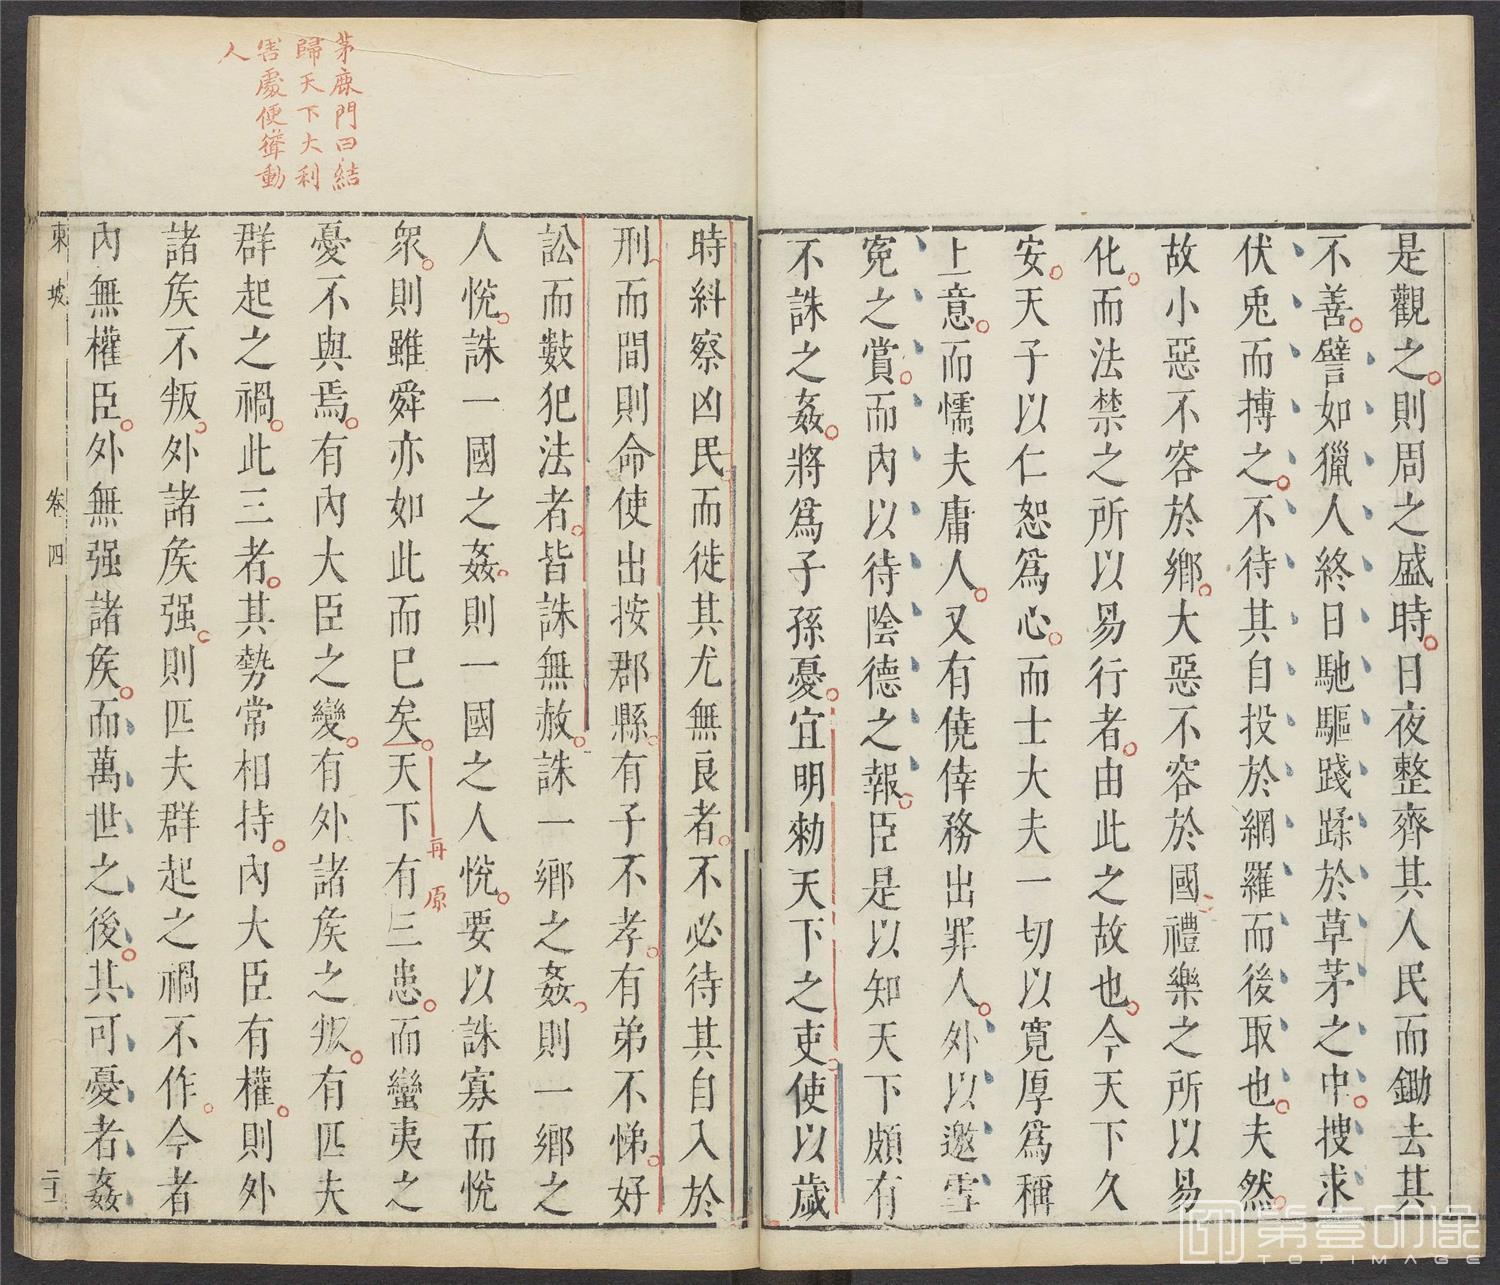 是觀之則周之盛時日夜整齊其人民而鋤去其
不善譬如獵人終日馳驅踐蹂於草茅之中搜求
伏兎而搏之不待其自投於網羅而後取也夫然
故小惡不容於鄉大惡不容於國禮樂之所以易
化而法禁之所以易行者由此之故也今天下久
安天子以仁恕爲心而士大夫一切以寛厚爲稱
上意而懦夫庸人又有僥倖務出罪人外以邀雪
寃之賞而內以待陰德之報臣是以知天下頗有
不誅之姦將爲子孫憂宜明勑天下之吏使以歲
時糾察凶民而徙其尤無良者不必待其自入於
刑而間則命使出按郡縣有子不孝有弟不悌好
訟而數犯法者皆誅無赦誅一鄉之姦則一鄉之
人悅誅一國之姦則一國之人悅要以誅寡而悅
衆則雖舜亦如此而已矣天下有三患而蠻夷之
憂不與焉有內大臣之變有外諸矦之叛有匹夫
群起之禍此三者其勢常相持內大臣有權則外
諸矦不叛外諸矦强則匹夫群起之禍不作今者
內無權臣外無强諸矦而萬世之後其可憂者姦
東坡 卷四 二十一
茅鹿門曰結
歸天下大利
害處便聳動
人
再原
第壹印像
TOPIMAGE